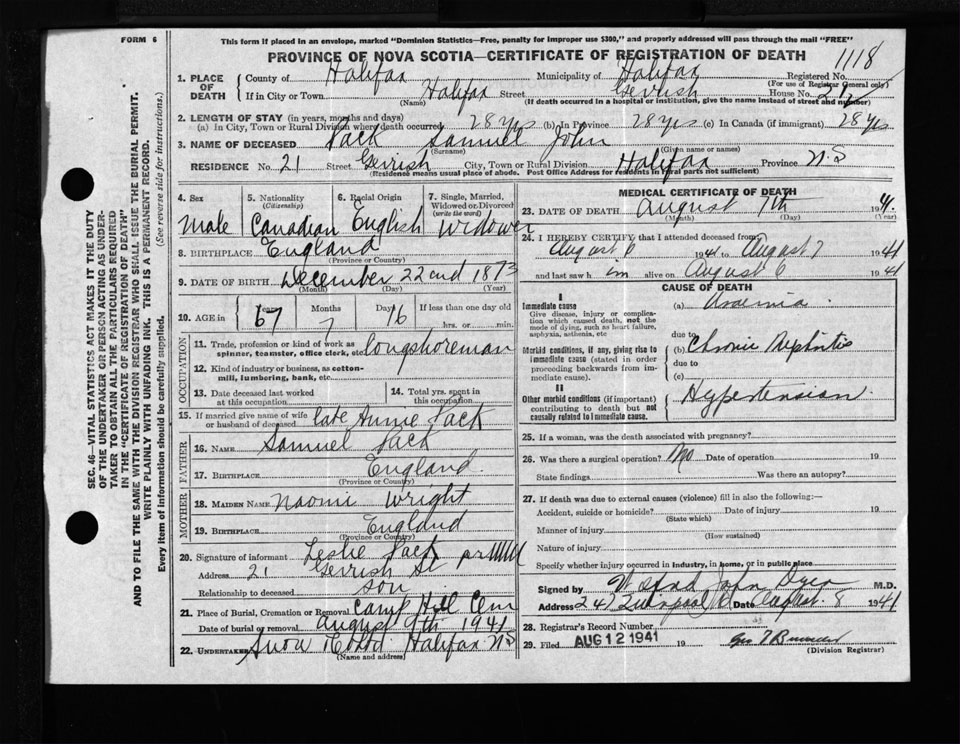 FORM 6
This form if placed in an envelope, marked "Dominion Statistics—Free, penalty for improper use $300," and properly addressed will pass through the mail "FREE"
PROVINCE OF NOVA SCOTIA—CERTIFICATE OF REGISTRATION OF DEATH
1118
1. PLACE OF DEATH
County of Halifax Municipality of Halifax Registered No.
(For use of Registrar General only)
If in City or Town Halifax Street Gerrish House No. 21
(Name) (If death occurred in a hospital or institution, give the name instead of street and number)
2. LENGTH OF STAY (in years, months and days)
(a) In City, Town or Rural Division where death occurred 28 yrs (b) In Province 28 yrs (c) In Canada (if immigrant) 28 yrs
3. NAME OF DECEASED Jack Samuel John
(Surname) (Given name or names)
RESIDENCE No. 21 Street Gerrish City, Town or Rural Division Halifax Province N.S
(Residence means usual place of abode. Post Office Address for residents in rural parts not sufficient)
4. Sex
Male
5. Nationality
(Citizenship)
Canadian
6. Racial Origin
English
7. Single, Married, Widowed or Divorced
(write the word)
Widower
8. BIRTHPLACE England
(Province or Country)
9. DATE OF BIRTH December 22nd 1873
(Month) (Day) (Year)
10. AGE in Years 67 Months 7 Days 16 If less than one day old
hrs. or min.
OCCUPATION
11. Trade, profession or kind of work as spinner, teamster, office clerk, etc. longshoreman
12. Kind of industry or business, as cotton-mill, lumbering, bank, etc.
13. Date deceased last worked at this occupation
14. Total yrs. spent in this occupation
15. If married give name of wife or husband of deceased late Annie Jack
FATHER
16. NAME Samuel Jack
17. BIRTHPLACE England
(Province or Country)
MOTHER
18. MAIDEN NAME Naomi Wright
19. BIRTHPLACE England
(Province or Country)
20. Signature of informant Leslie Jack
Address 21 Gerrish St
Relationship to deceased son
21. Place of Burial, Cremation or Removal Camp Hill Cem
Date of burial or removal August 9th 1941
22. UNDERTAKER Snow Halifax N S
(Name and address)
MEDICAL CERTIFICATE OF DEATH
23. DATE OF DEATH August 7th 1941
(Month) (Day) (Year)
24. I HEREBY CERTIFY that I attended deceased from
August 6 1941 to August 7 1941
and last saw h im alive on August 6 1941
CAUSE OF DEATH
I
Immediate cause
Give disease, injury or complication which caused death, not the mode of dying, such as heart failure, asphyxia, asthenia, etc
(a) Uraemia
due to
Morbid conditions, if any, giving rise to immediate cause (stated in order proceeding backwards from immediate cause).
(b) Chronic Nephritis
due to
(c)
II
Other morbid conditions (if important) contributing to death but not causally related to immediate cause.
Hypertension
25. If a woman, was the death associated with pregnancy?
26. Was there a surgical operation? No Date of operation 19
State findings Was there an autopsy?
27. If death was due to external causes (violence) fill in also the following:—
Accident, suicide or homicide? Date of injury 19
(State which)
Manner of injury
(How sustained)
Nature of injury
Specify whether injury occurred in industry, in home, or in public place
Signed by John Dyer M.D.
Address 247 Date August 8 1941
28. Registrar's Record Number
29. Filed AUG 12 1941 19
(Division Registrar)
SEC. 46—VITAL STATISTICS ACT MAKES IT THE DUTY
OF THE UNDERTAKER OR PERSON ACTING AS UNDER-
TAKER TO OBTAIN ALL THE PARTICULARS REQUIRED
IN THE "CERTIFICATE OF REGISTRATION OF DEATH"
AND TO FILE THE SAME WITH THE DIVISION REGISTRAR WHO SHALL ISSUE THE BURIAL PERMIT.
WRITE PLAINLY WITH UNFADING INK. THIS IS A PERMANENT RECORD.
Every item of information should be carefully supplied. (See reverse side for instructions.)